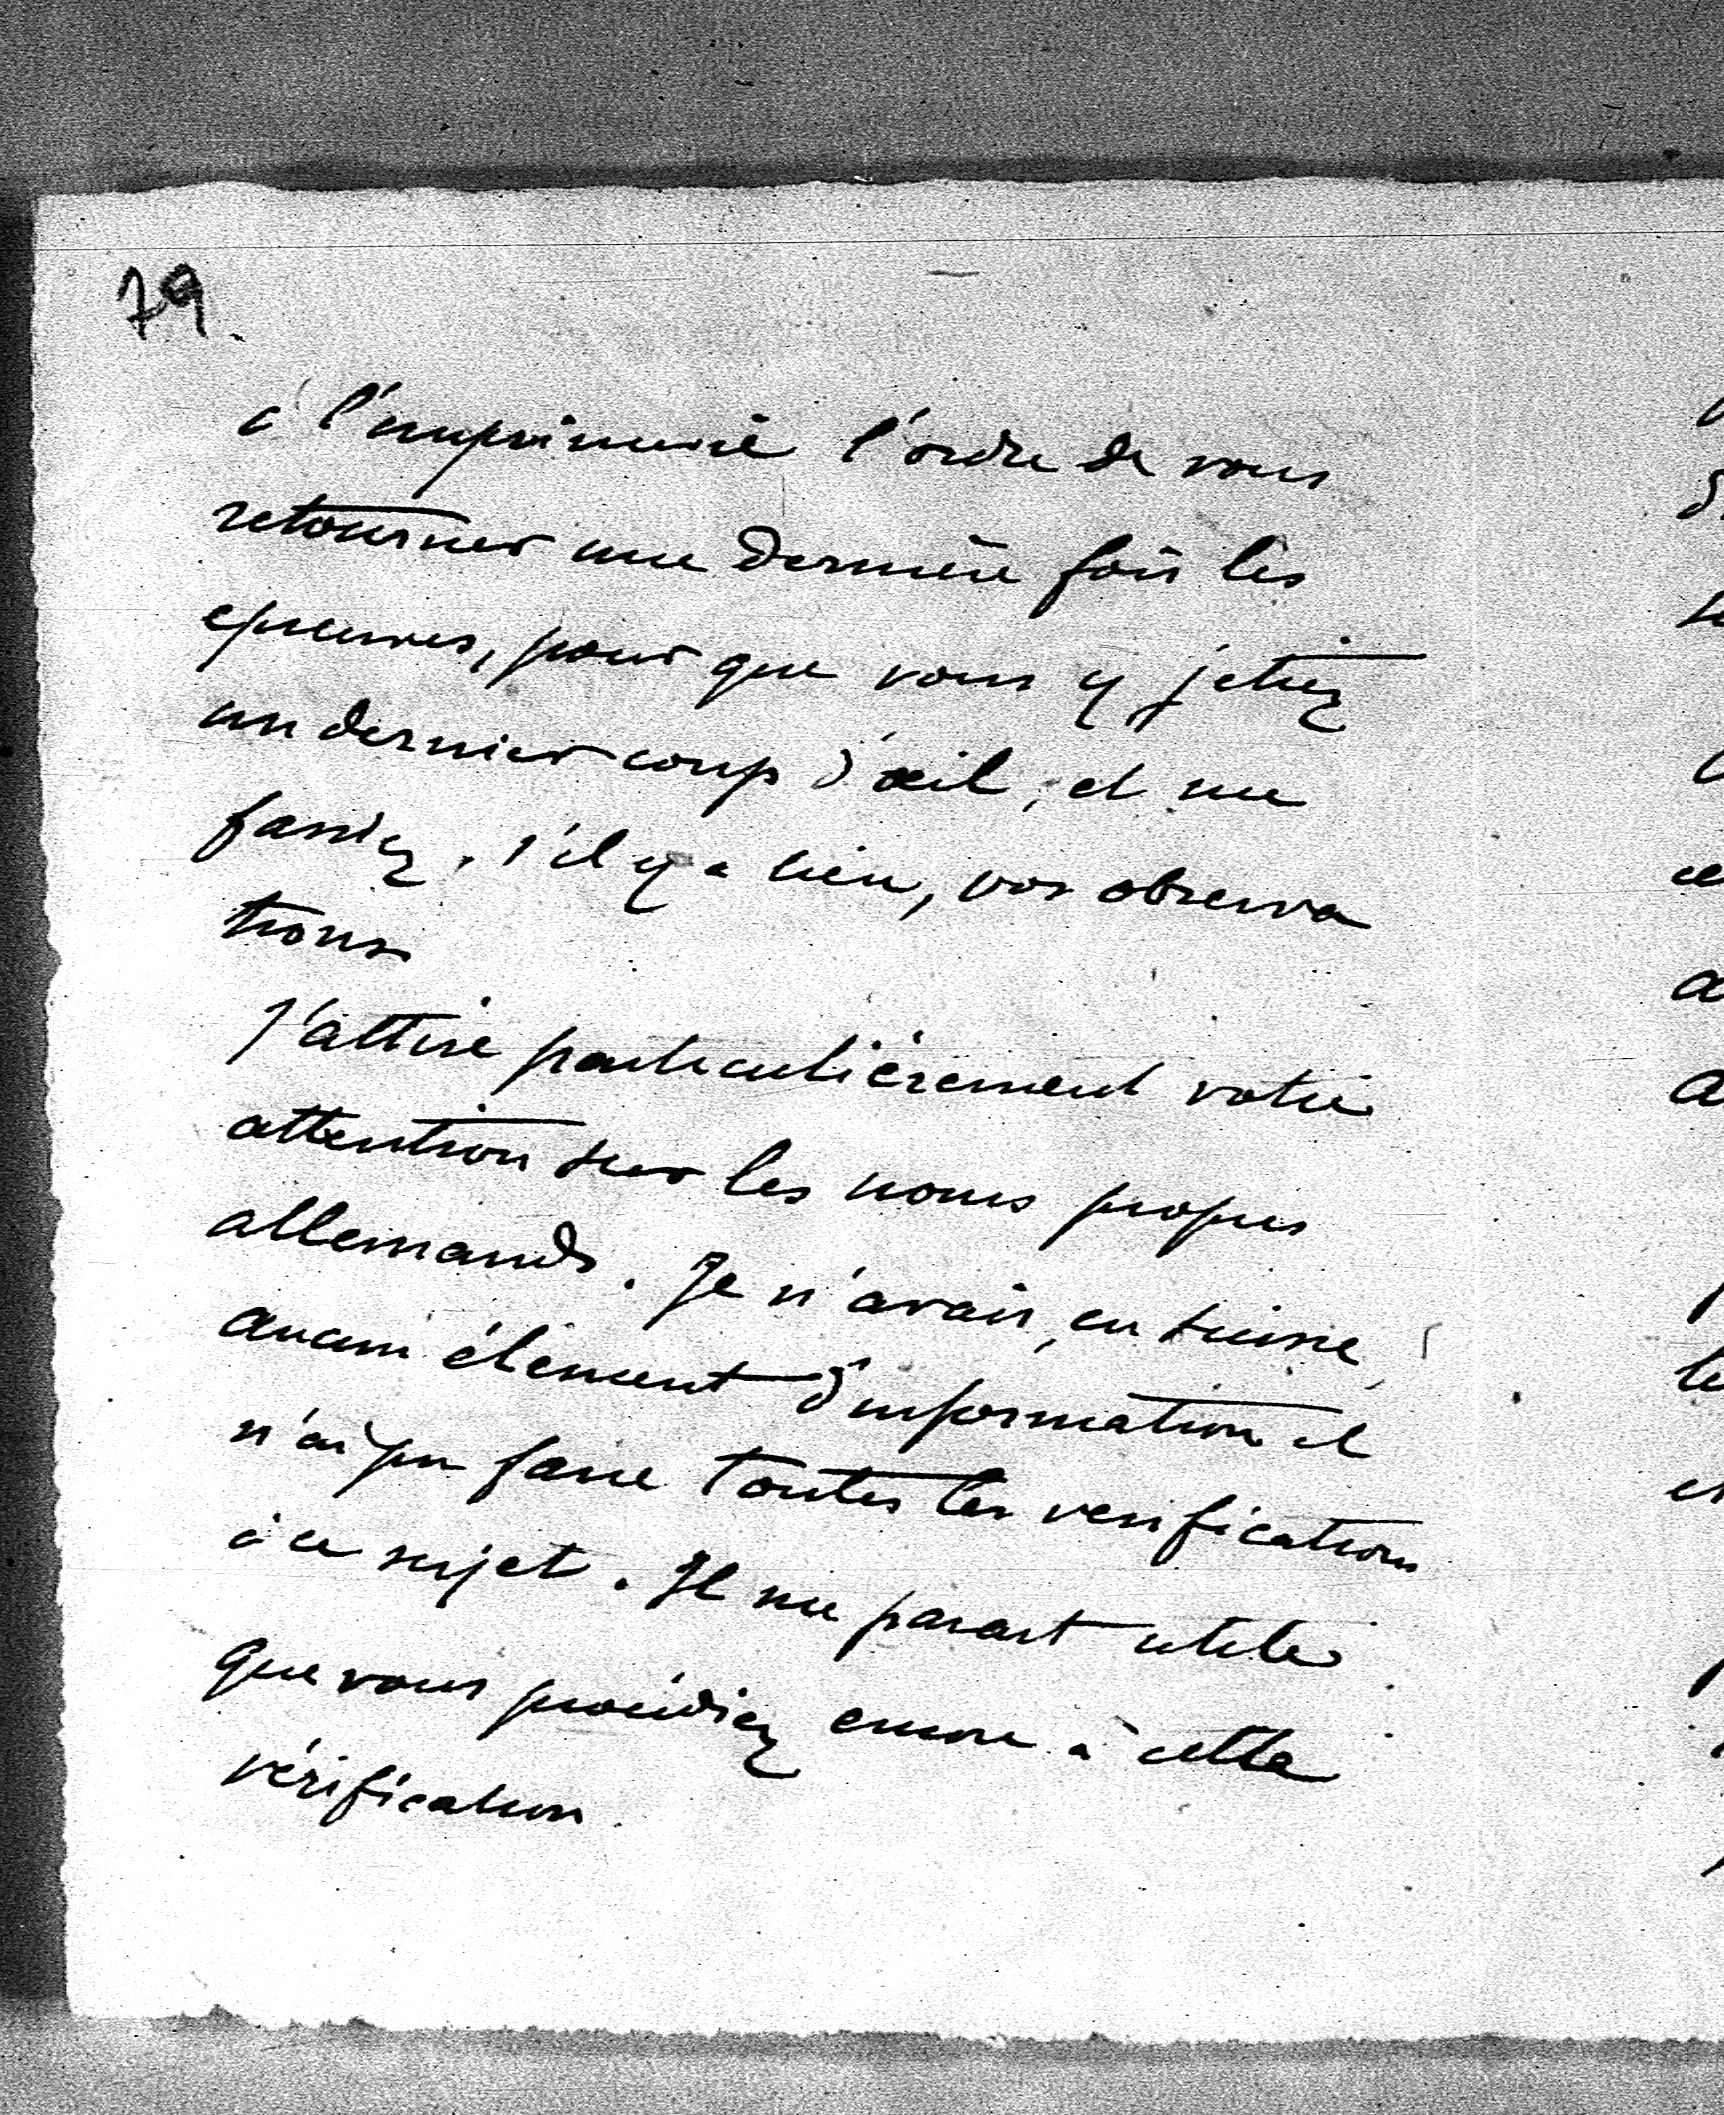 79.
à l'imprimerie l'ordre de vous
retourner une dernière fois les
epreuves, pour que vous y jetiez
un dernier coup d'œil, et me
fassiez, s'il y a lieu, vos observa
tions
J'attire particulièrement votre
attention sur les noms propres
allemands. Je n'avais, en suisse,
aucun élément d'information et
n'ai pu faire toutes les verifications
à ce sujet. Il me parait utile
que vous procédiez encore à cette
vérification.